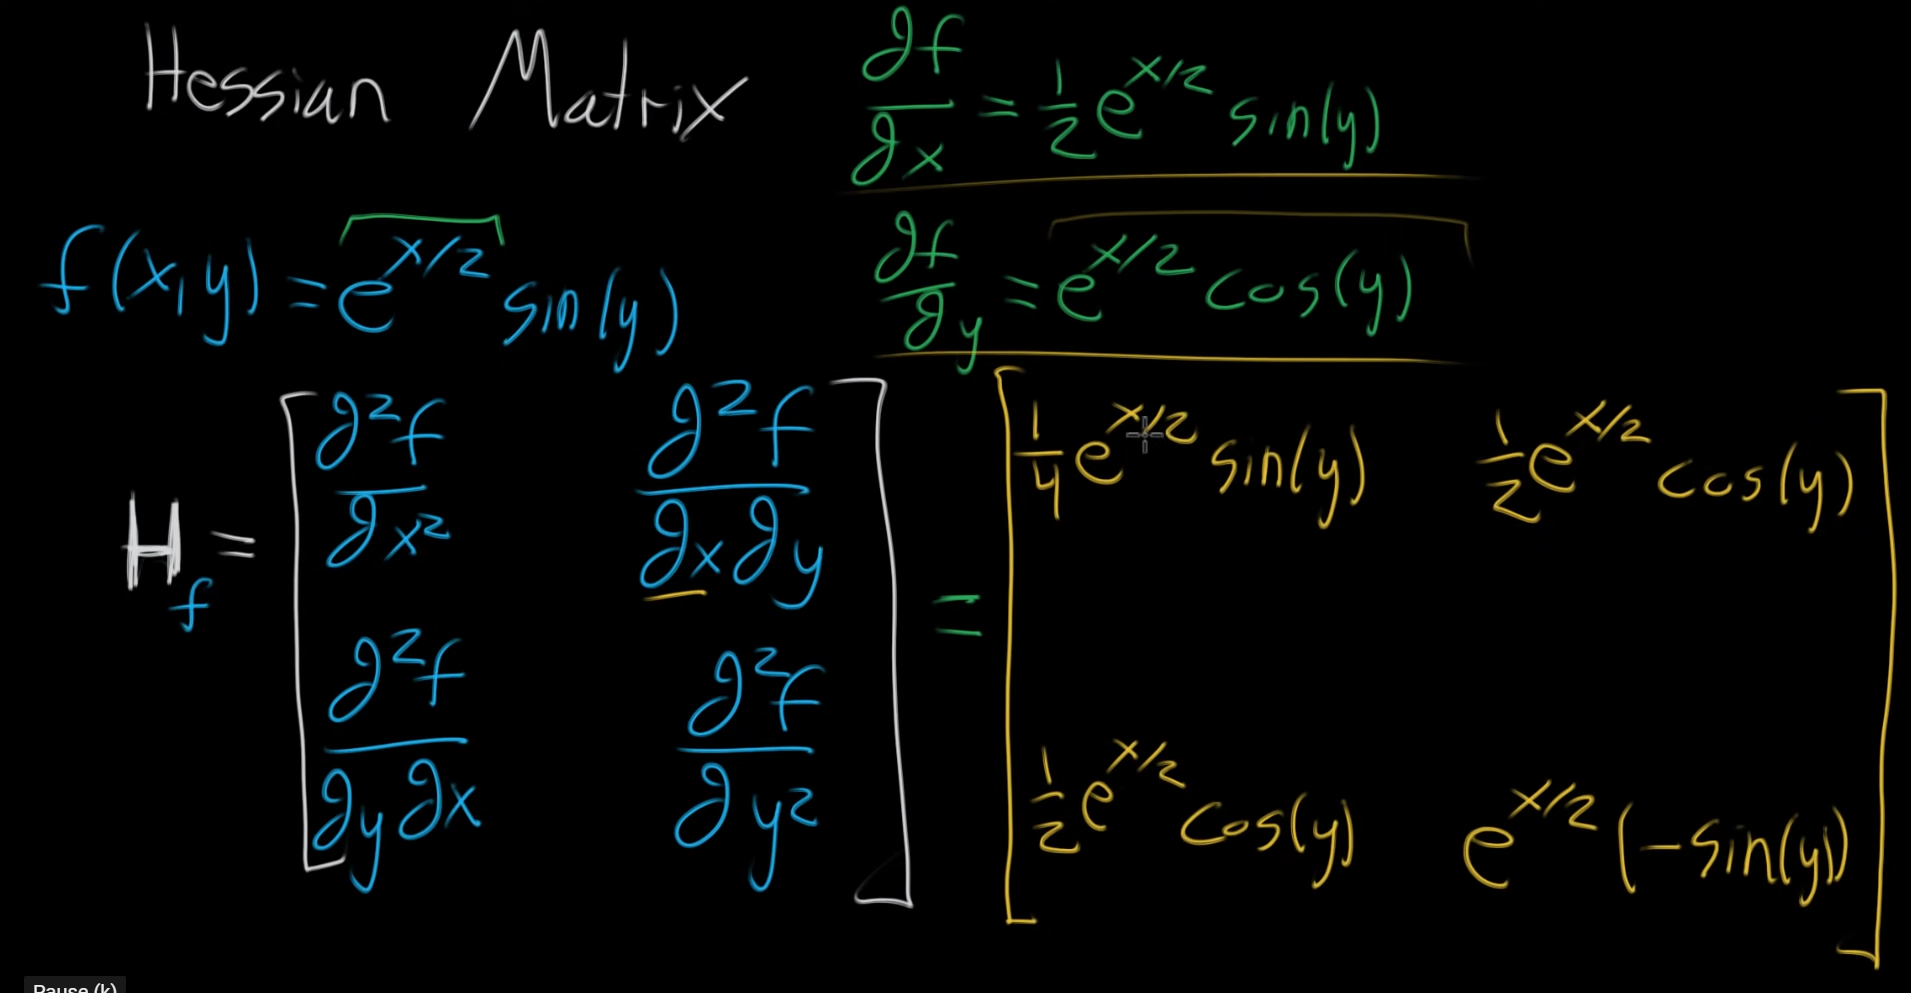 Hessian Matrix
∂f/∂x = 1/2 e^(x/2) sin(y)
f(x,y) = e^(x/2) sin(y)
∂f/∂y = e^(x/2) cos(y)
H_f = [ ∂²f/∂x² ∂²f/∂x∂y ] = [ 1/4 e^(x/2) sin(y) 1/2 e^(x/2) cos(y) ]
[ ∂²f/∂y∂x ∂²f/∂y² ] [ 1/2 e^(x/2) cos(y) e^(x/2) (-sin(y)) ]
Pause (k)